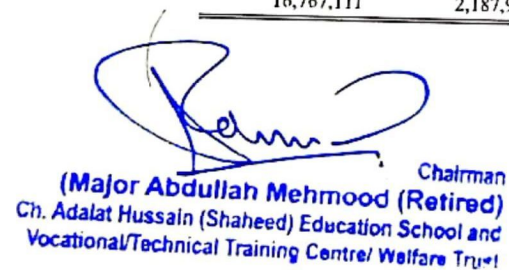 16,767,111 2,187,9
Chairman
(Major Abdullah Mehmood (Retired)
Ch. Adalat Hussain (Shaheed) Education School and
Vocational/Technical Training Centre/ Welfare Trust